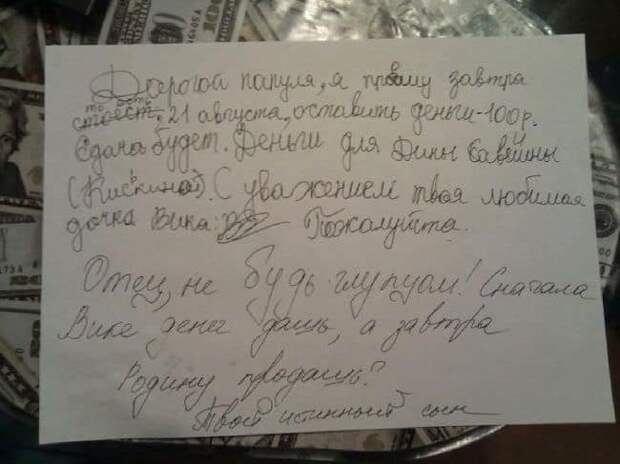 Дорогой папуля, я прошу завтра
то есть 21 августа, оставить деньги-100р.
Сдача будет. Деньги для Дины Савейны
(Киськиной). С уважением твоя любимая
дочка Вика. Пожалуйста.
Отец, не будь глупцом! Сначала
Вике денег дашь, а завтра
Родину продашь?
Твой истинный сын